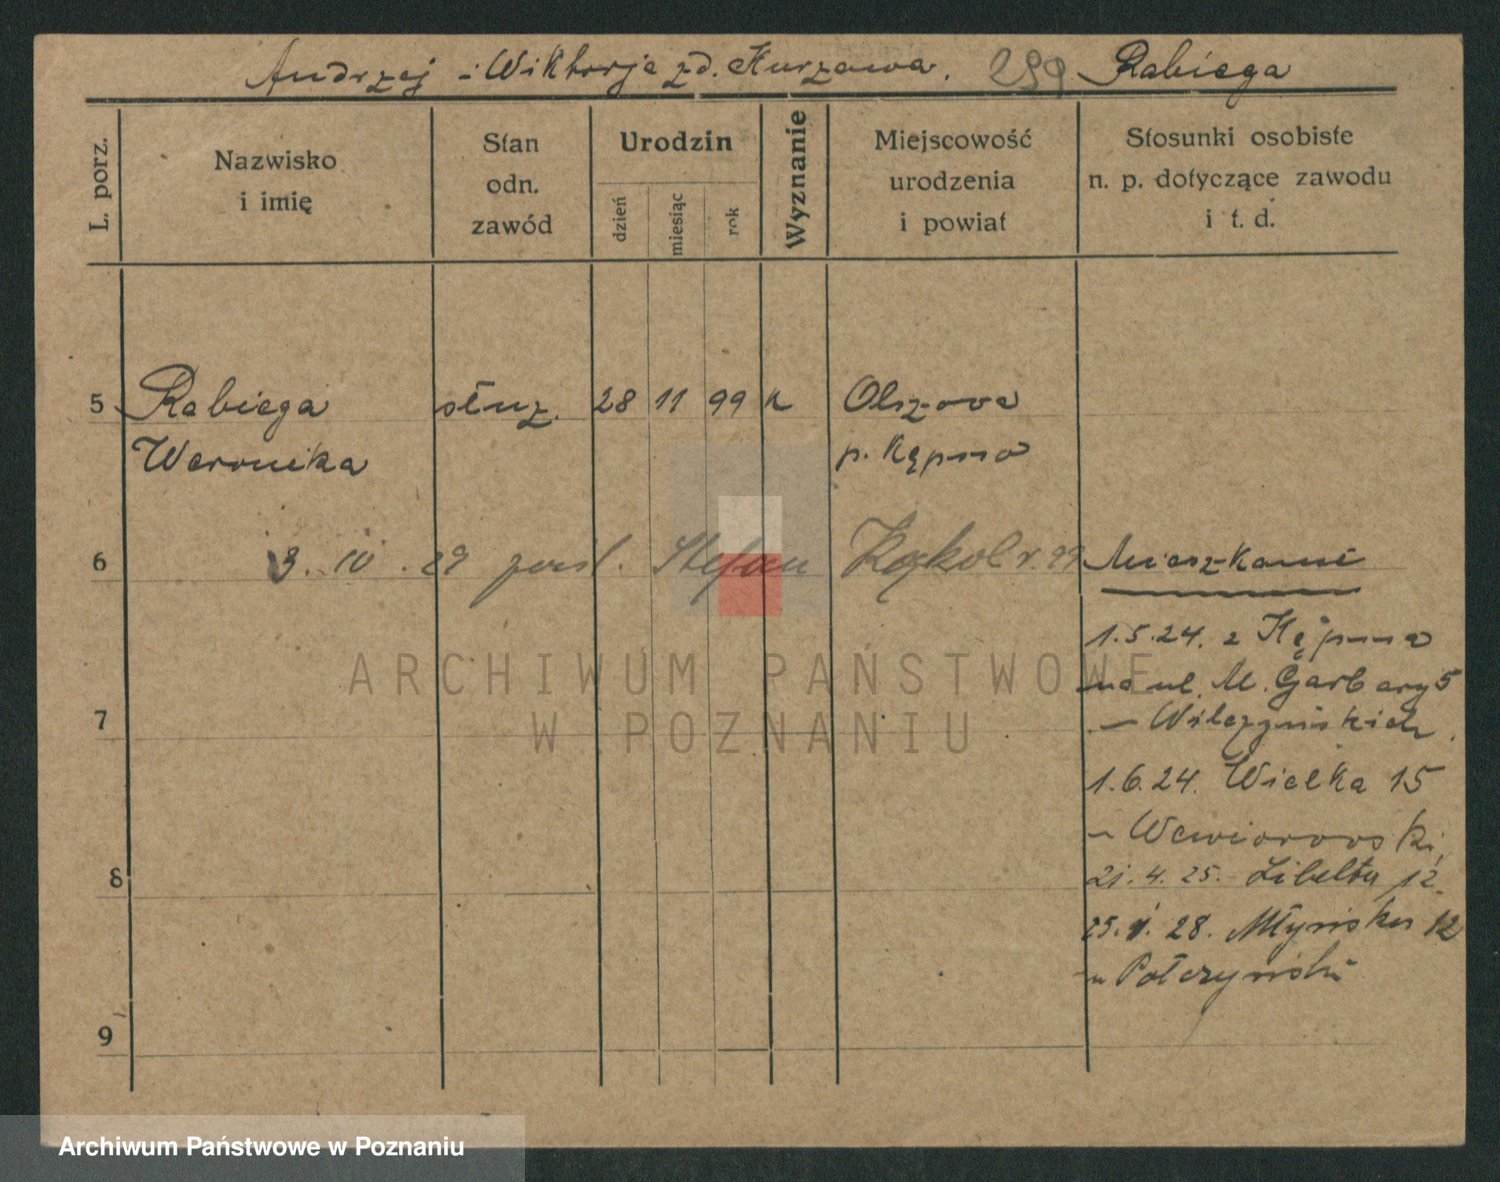 Andrzej i Wiktorja zd. Kurzawa. 299 Rabiega
L. porz.
Nazwisko
i imię
Stan
odn.
zawód
Urodzin
dzień
miesiąc
rok
Wyznanie
Miejscowość
urodzenia
i powiat
Stosunki osobiste
n. p. dotyczące zawodu
i t. d.
5 Rabiega służ. 28 11 99 k Olszova
Weronika p. Kępno
3. 10. 29 posl. Stefan Kąkol r. 99
6 Mieszkanie
1.5.24. z Kępna
na ul. M. Garbary 5
– Wilczyńskich
7
1.6.24. Wielka 15
– Wewiorowski,
8 21.4.25. Libelta 12.
25. 28. Młyńska 12
u Połczyński
9
ARCHIWUM PAŃSTWOWE
W POZNANIU
Archiwum Państwowe w Poznaniu